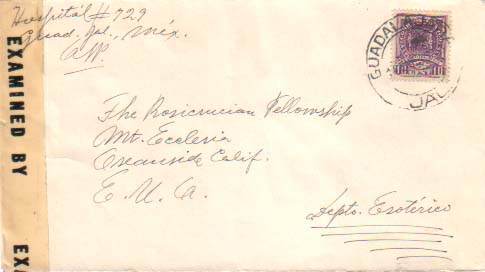 Hospital # 729
Guad. Jal., Méx.
EXAMINED BY
EX
GUADALAJARA
JAL
10
The Rosicrucian Fellowship
Mt. Ecclesia
Oceanside Calif.
E. U. A.
Depto. Esotérico